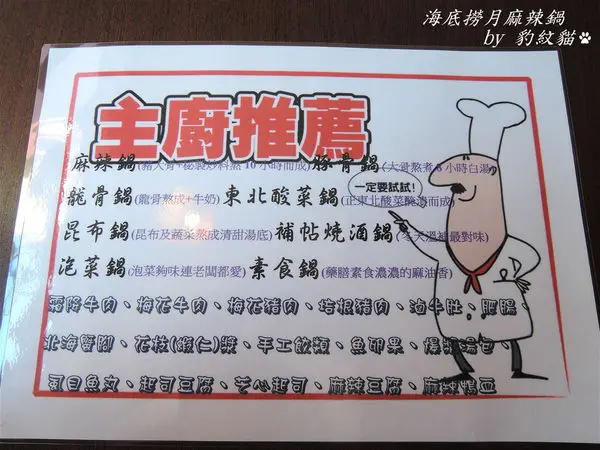 海底撈月麻辣鍋
by 豹紋貓
主廚推薦
麻辣鍋(豬大骨+秘製炒料熬10小時而成)豚骨鍋(大骨熬煮8小時白湯)
一定要試試!
龍骨鍋(龍骨熬成+牛奶)東北酸菜鍋(正東北酸菜醃漬而成)
昆布鍋(昆布及蔬菜熬成清甜湯底)補帖燒酒鍋(冬天溫補最對味)
泡菜鍋(泡菜夠味連老闆都愛)素食鍋(藥膳素食濃濃的麻油香)
霜降牛肉、梅花牛肉、梅花豬肉、培根豬肉、滷牛肚、肥腸、
北海蟹腳、花枝(蝦仁)漿、手工餃類、魚卵果、爆漿湯包
虱目魚丸、起司豆腐、芝心起司、麻辣豆腐、麻辣鴨血